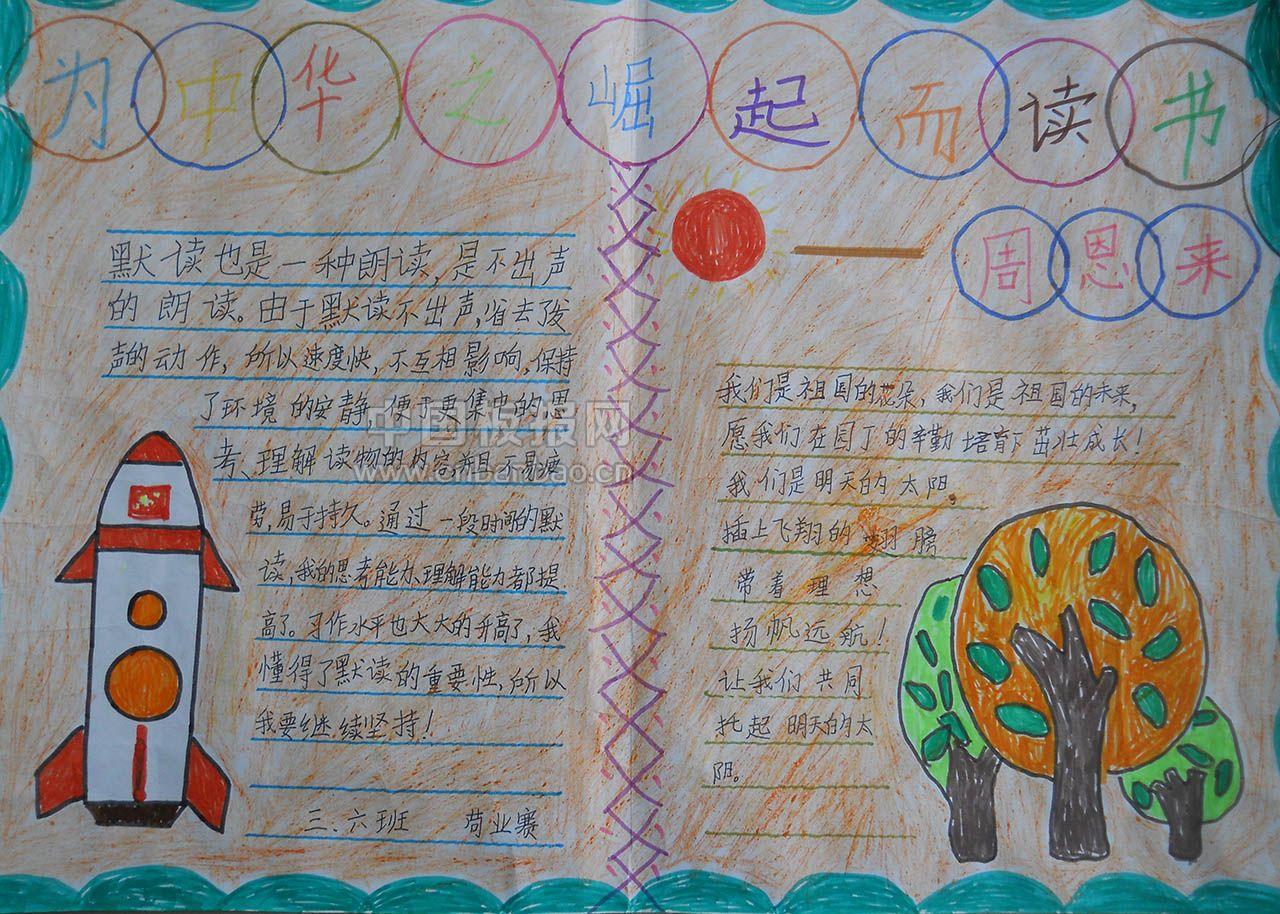 为中华之崛起而读书
周恩来
默读也是一种朗读,是不出声
的朗读。由于默读不出声,省去发
声的动作,所以速度快,不互相影响,保持
了环境的安静,便于更集中的思
考、理解读物的内容并且不易疲
劳,易于持久。通过一段时间的默
读,我的思考能力、理解能力都提
高了。习作水平也大大的升高了,我
懂得了默读的重要性,所以
我要继续坚持!
三.六班 苟业赛
我们是祖国的花朵,我们是祖国的未来,
愿我们在园丁的辛勤培育下茁壮成长!
我们是明天的太阳,
插上飞翔的翅膀
带着理想
扬帆远航!
让我们共同
托起明天的太
阳。
中国板报网
www.cnbanbao.cn